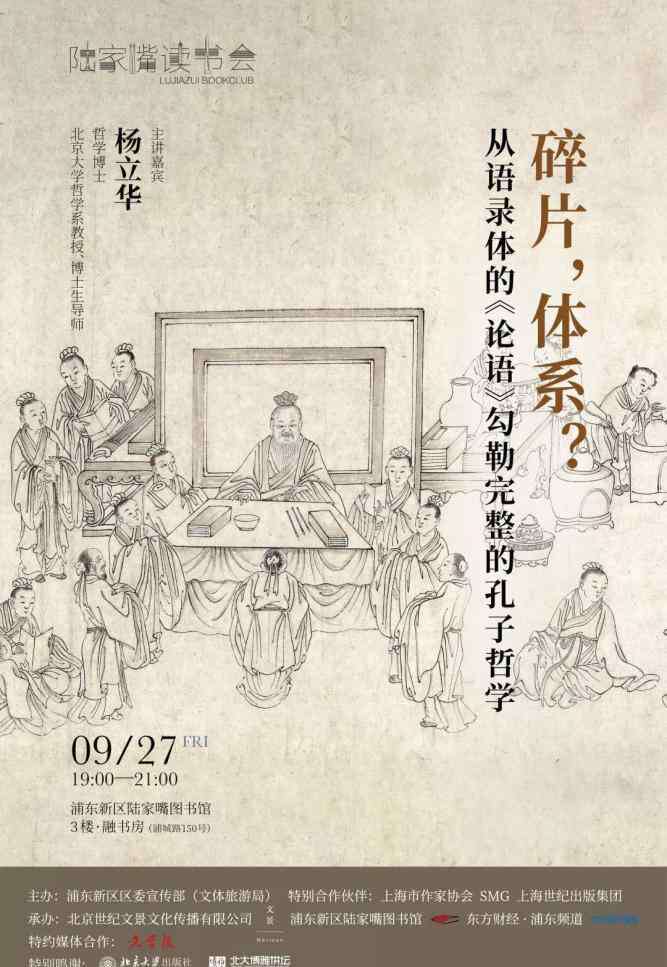 陆家嘴读书会
LUJIAZUI BOOKCLUB
碎片，体系？
从语录体的《论语》勾勒完整的孔子哲学
主讲嘉宾
杨立华
哲学博士
北京大学哲学系教授、博士生导师
09/27 FRI
19:00—21:00
浦东新区陆家嘴图书馆
3楼·融书房（浦城路150号）
主办：浦东新区区委宣传部（文体旅游局） 特别合作伙伴：上海市作家协会 SMG 上海世纪出版集团
承办：北京世纪文景文化传播有限公司 文景 Horizon 浦东新区陆家嘴图书馆 东方财经·浦东频道
特约媒体合作：文学报
特别鸣谢：北京大学出版社 北大博雅讲坛